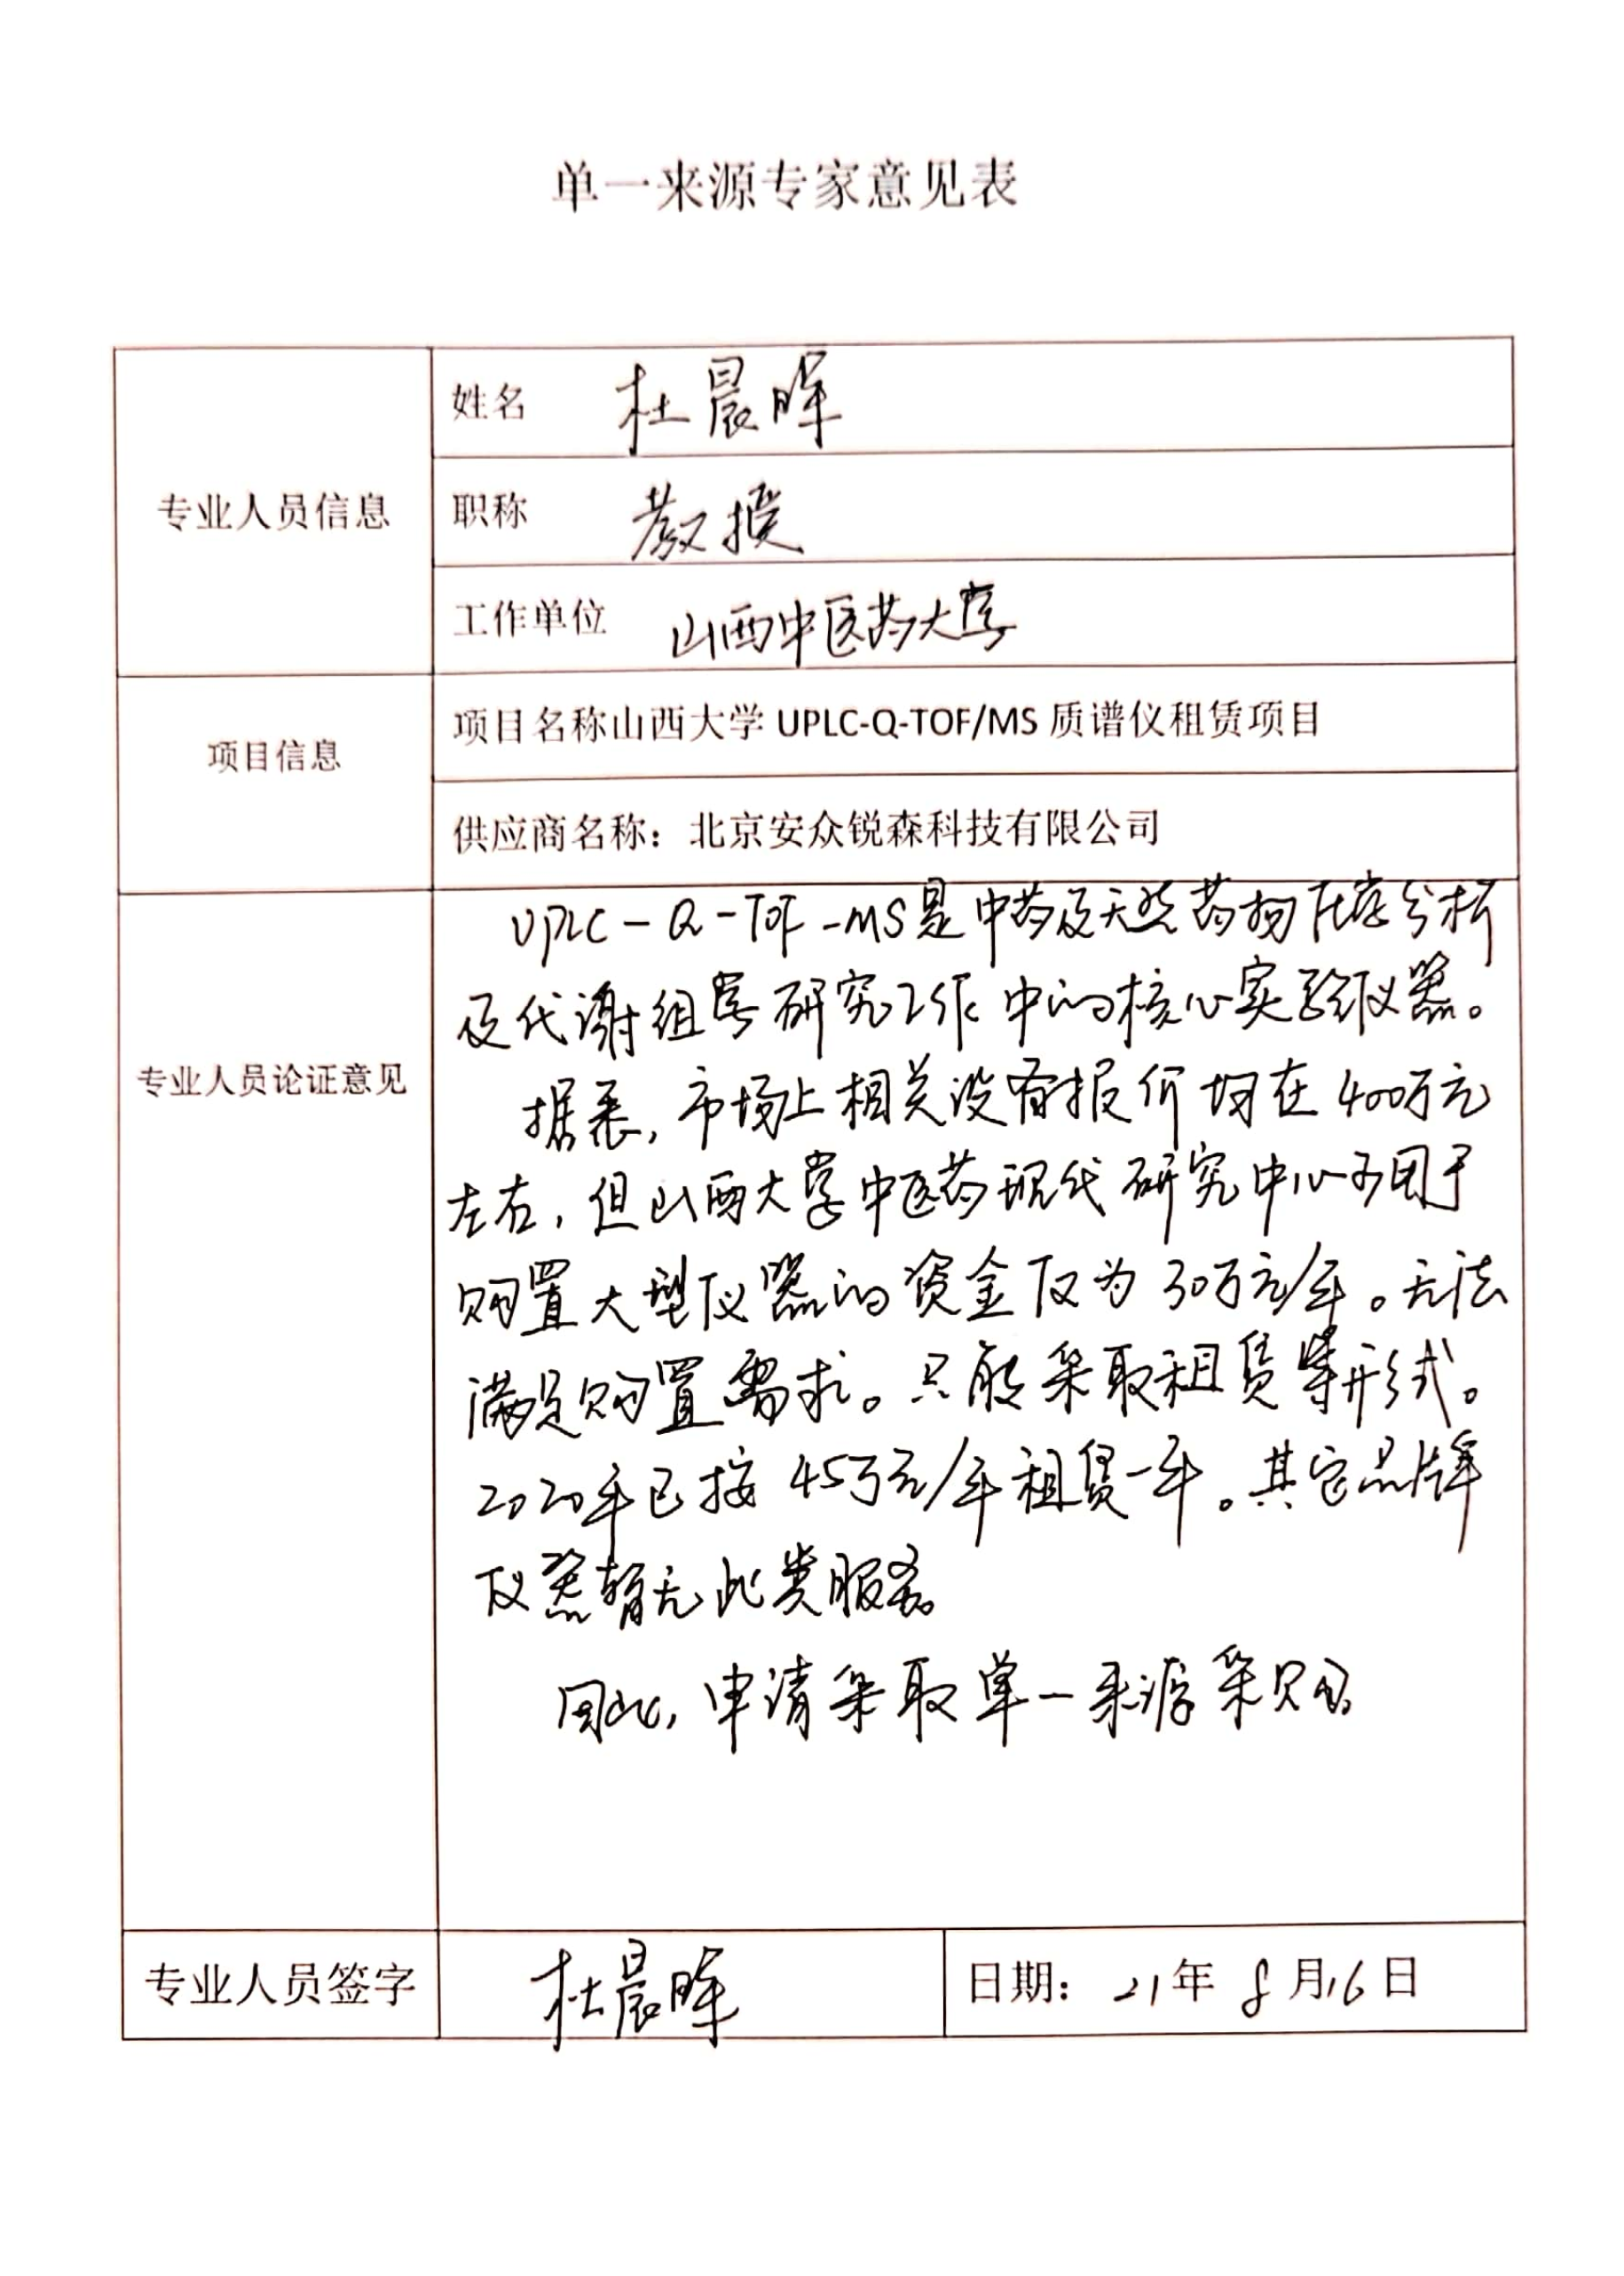 单一来源专家意见表
专业人员信息
姓名 杜晨晖
职称 教授
工作单位 山西中医药大学
项目信息
项目名称山西大学 UPLC-Q-TOF/MS 质谱仪租赁项目
供应商名称：北京安众锐森科技有限公司
专业人员论证意见
UPLC-Q-TOF-MS是中药及天然药物 分析
及代谢组学研究工作中的核心实验仪器。
据悉，市场上相关设备报价均在400万元
左右，但山西大学中医药现代研究中心可用于
购置大型仪器的资金仅为30万元/年。无法
满足购置需求。只能采取租赁等形式。
2020年已按45万元/年租赁一年。其它品牌
仪器暂无此类服务。
因此，申请采取单一来源采购。
专业人员签字
杜晨晖
日期：21年8月16日